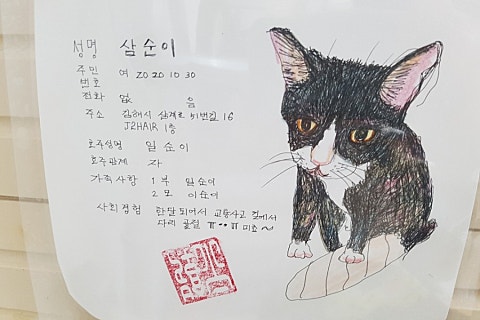 성명 삼순이
주민 여 2020 10 30
번호
전화 없 음
주소 김해시 삼계로 51번길 16
J2HAIR 1층
호주성명 일순이
호주관계 자
가족사항 1 부 일순이
2 모 이순이
사회경험 한달 되어서 교통사고 길에서
다리 골절 ㅠ••ㅠ 미요~